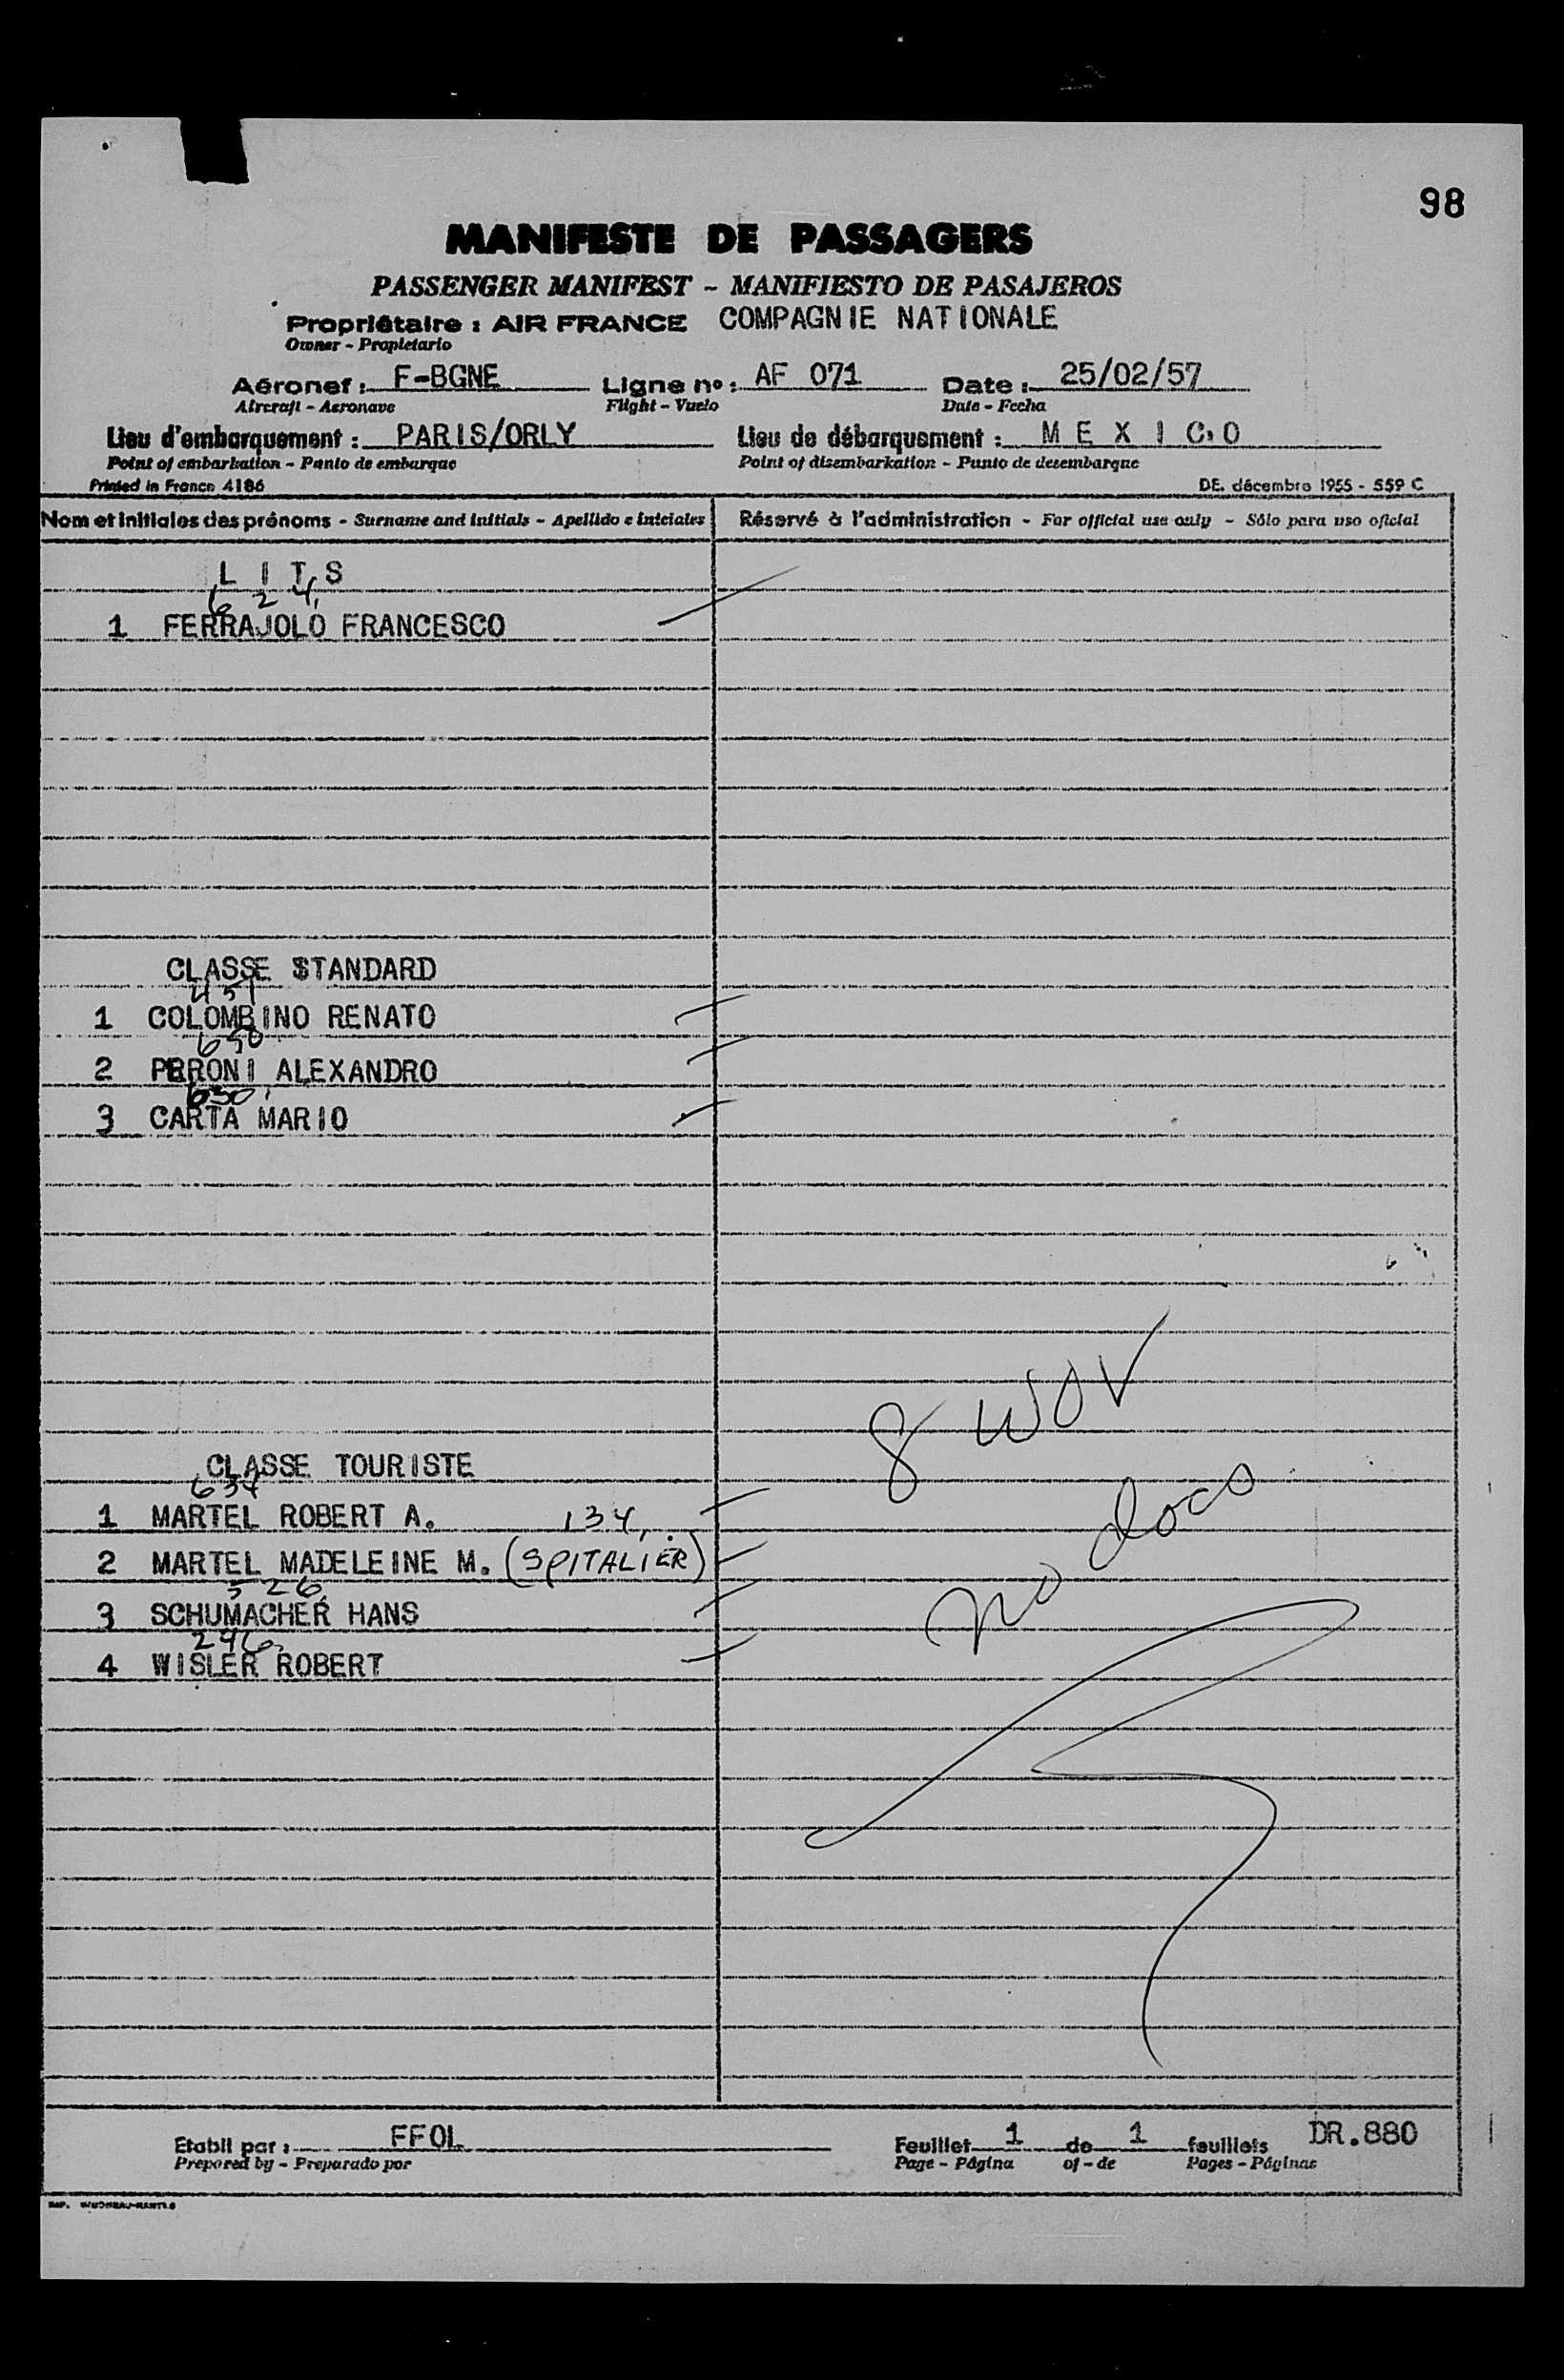 98
MANIFESTE DE PASSAGERS
PASSENGER MANIFEST - MANIFIESTO DE PASAJEROS
Propriétaire : AIR FRANCE COMPAGNIE NATIONALE
Owner - Propietario
Aéronef : F-BGNE Ligne nº : AF 071 Date : 25/02/57
Aircraft - Aeronave Flight - Vuelo Date - Fecha
Lieu d'embarquement : PARIS/ORLY Lieu de débarquement : MEXICO
Point of embarkation - Punto de embarque Point of disembarkation - Punto de desembarque
Printed in France 4186 DE. décembre 1955 - 559 C
Nom et initiales des prénoms - Surname and initials - Apellido e iniciales Réservé à l'administration - For official use only - Sólo para uso oficial
LITS
6 2 4
1 FERRAJOLO FRANCESCO
CLASSE STANDARD
451
1 COLOMBINO RENATO
650
2 PERONI ALEXANDRO
630
3 CARTA MARIO
8 WOV
CLASSE TOURISTE
634
1 MARTEL ROBERT A. 134
no docs
2 MARTEL MADELEINE M. (SPITALIER)
526
3 SCHUMACHER HANS
246
4 WISLER ROBERT
Etabli par : FFOL Feuillet 1 de 1 feuillets DR.880
Prepared by - Preparado por Page - Página of - de Pages - Páginas